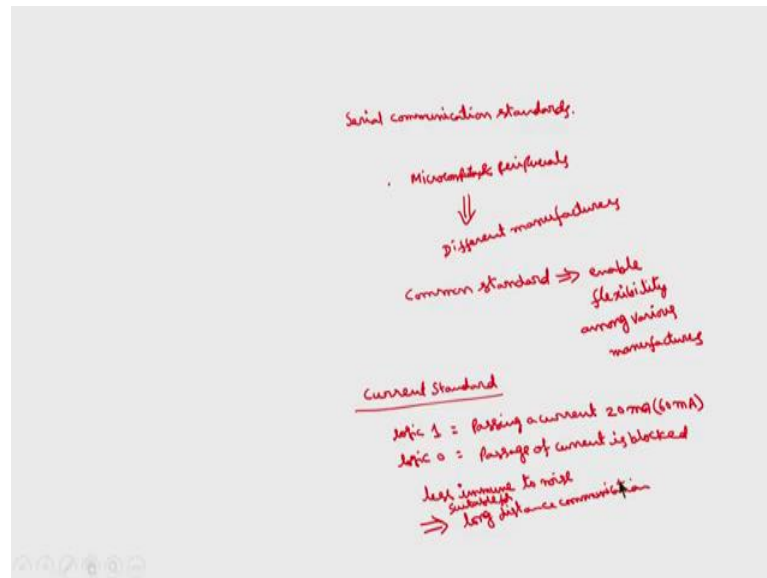 Serial communication standards.
. Microcomputer peripherals
⇓
Different manufacturers
Common standard ⇒ enable
flexibility
among various
manufactures
Current Standard
logic 1 = Passing a current 20mA (60mA)
logic 0 = Passage of current is blocked
less immune to noise
suitable for
⇒ long distance communication